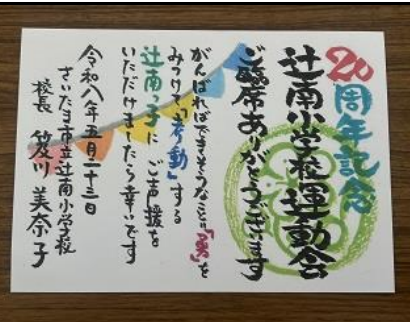 20周年記念
辻南小学校運動会
ご臨席ありがとうございます
がんばればできそうなこと"勇"を
みつけて「考動」する
辻南っ子に ご声援を
いただけましたら幸いです
令和八年五月二十三日
さいたま市立辻南小学校
校長 笈川 美奈子